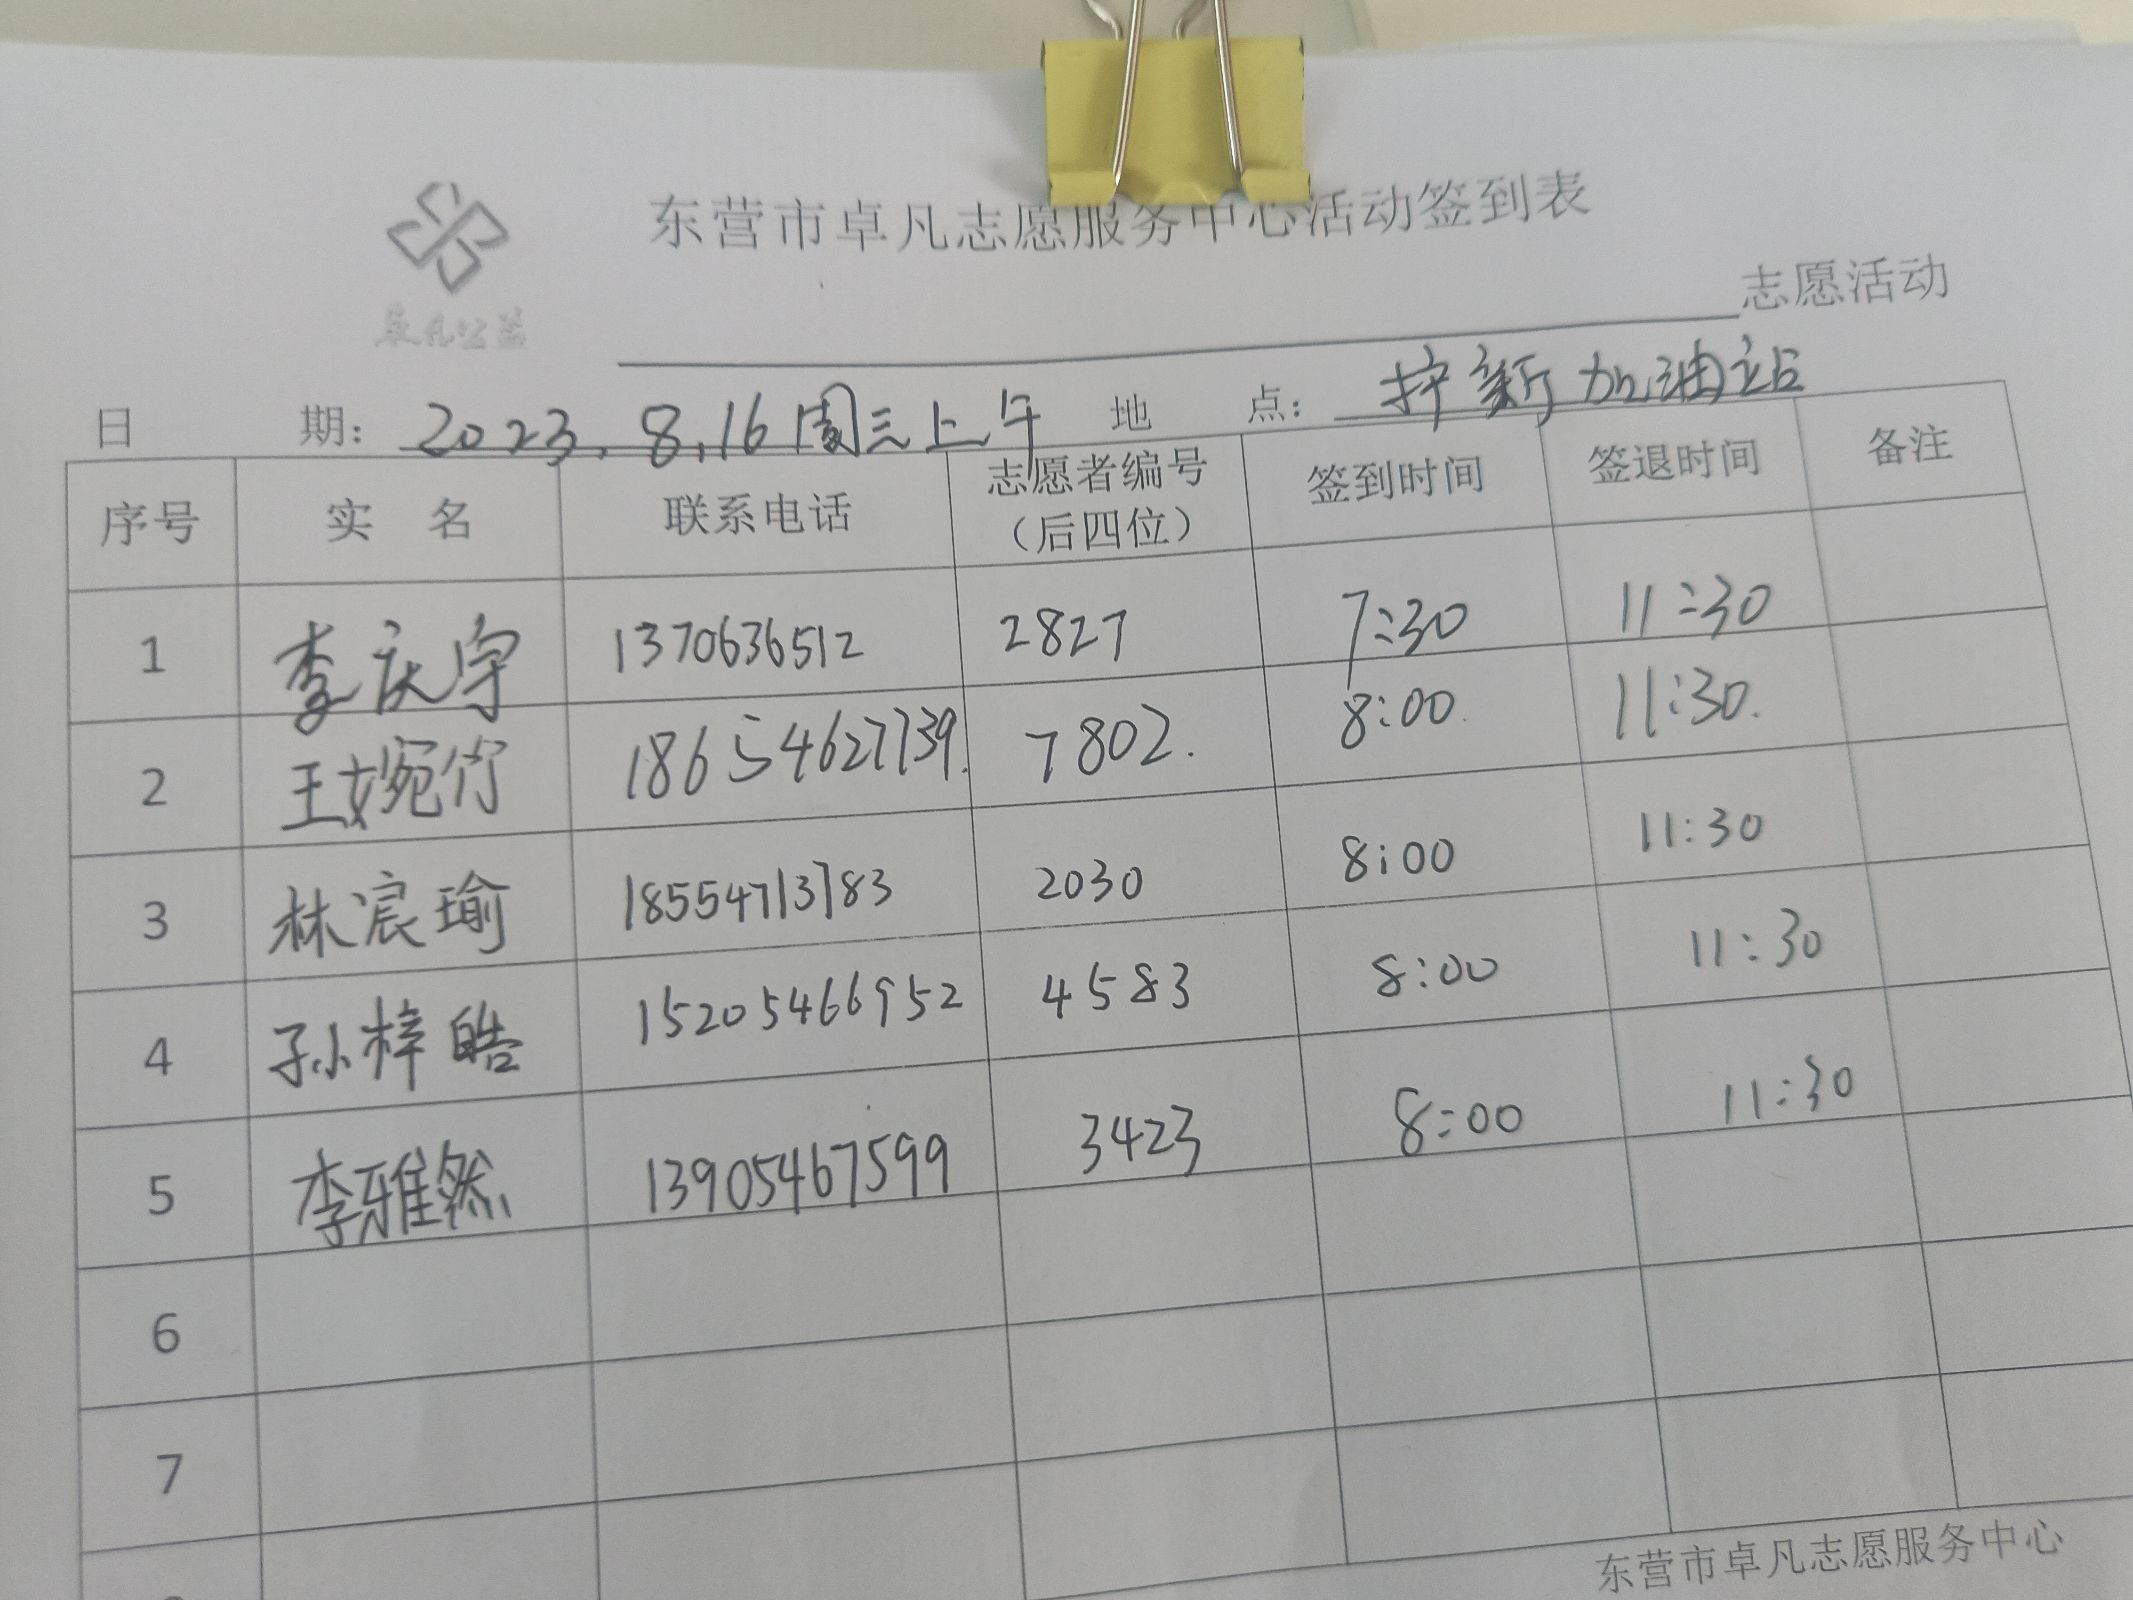 东营市卓凡志愿服务中心活动签到表
卓凡公益
志愿活动
日 期：2023.8.16周三上午 地 点：护新加油站
序号 实 名 联系电话 志愿者编号（后四位） 签到时间 签退时间 备注
1 李庆宇 1370636512 2827 7:30 11:30
2 王婉竹 18654627739. 7802. 8:00. 11:30.
3 林宸瑜 18554713783 2030 8:00 11:30
4 孙梓皓 15205466952 4583 8:00 11:30
5 李雅然 13905467599 3423 8:00 11:30
6
7
东营市卓凡志愿服务中心